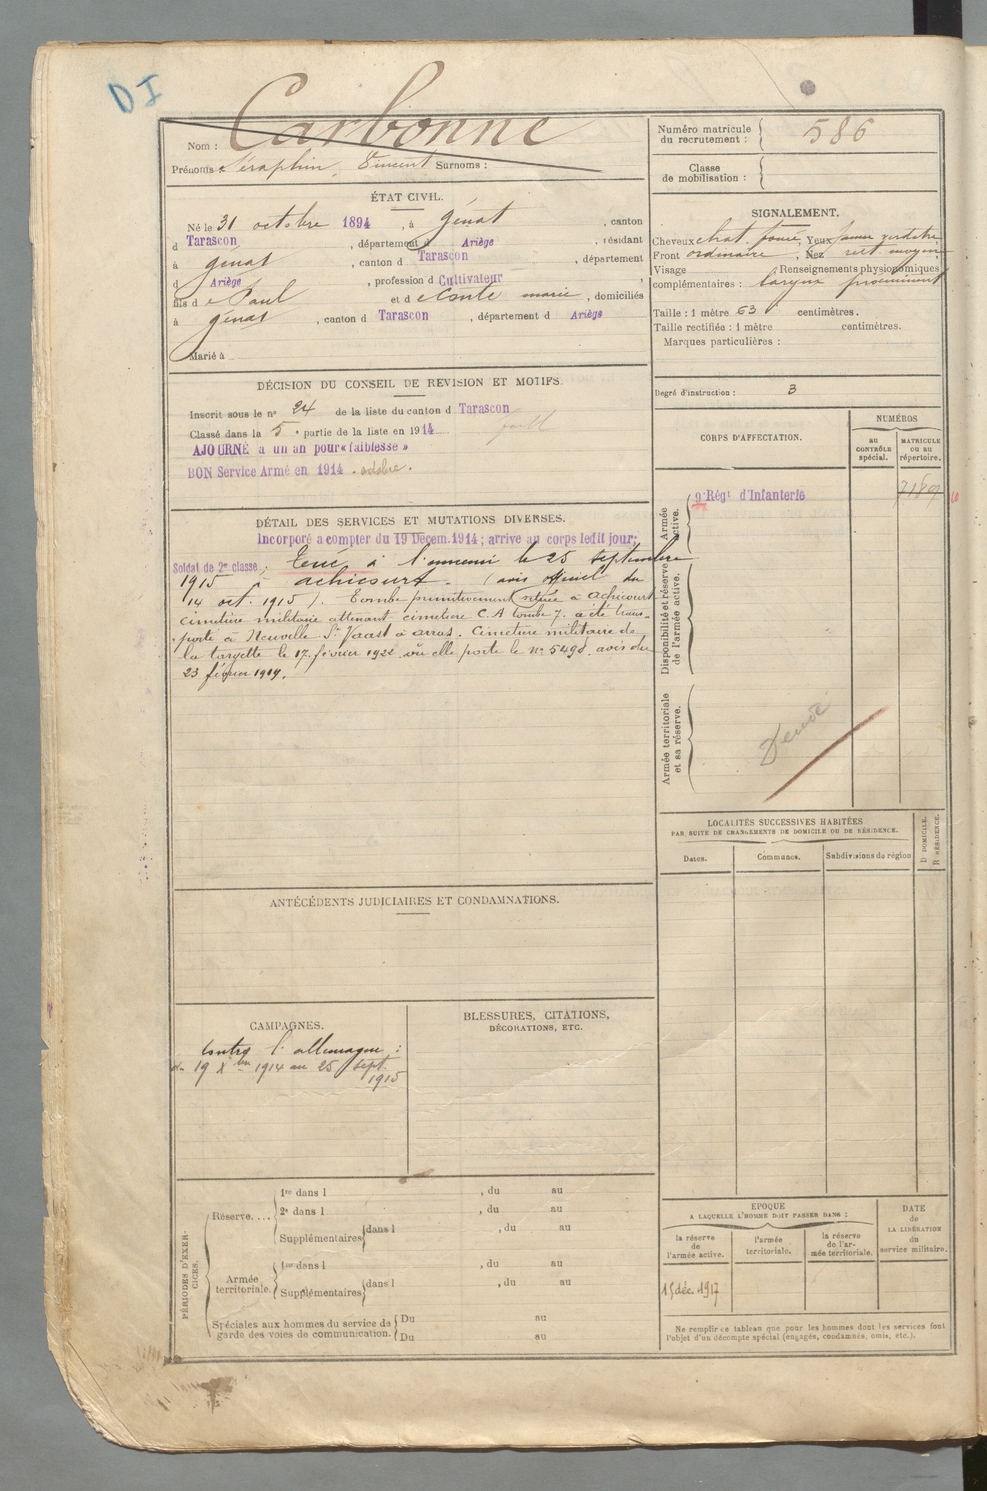 DI
Nom : Carbonne
Prénoms : Séraphin, Vincent Surnoms :
Numéro matricule du recrutement : 586
Classe de mobilisation :
ÉTAT CIVIL.
Né le 31 octobre 1894, à Génat, canton
d Tarascon, département d Ariège, résidant
à Génat, canton d Tarascon, département
d Ariège, profession d Cultivateur
fils de Paul et de Conte marie, domiciliés
à Génat, canton d Tarascon, département d Ariège
Marié à
SIGNALEMENT.
Cheveux chat. foncé, Yeux verdâtre
Front ordinaire, Nez rect. moyen
Visage Renseignements physionomiques
complémentaires : larynx proéminent
Taille : 1 mètre 63 centimètres.
Taille rectifiée : 1 mètre centimètres.
Marques particulières :
Degré d'instruction : 3
DÉCISION DU CONSEIL DE REVISION ET MOTIFS
Inscrit sous le n° 24 de la liste du canton d Tarascon
Classé dans la 5e partie de la liste en 1914
AJOURNÉ à un an pour « faiblesse »
BON Service Armé en 1914 . octobre.
DÉTAIL DES SERVICES ET MUTATIONS DIVERSES.
Incorporé à compter du 19 Décem. 1914 ; arrive au corps ledit jour;
Soldat de 2e classe ; Tué à l'ennemi le 25 septembre
1915 à achicourt. (avis officiel du
14 oct. 1915). Tombe primitivement située à achicourt
cimetière militaire attenant cimetière C.A tombe 7. a été trans-
porté à Neuville St Vaast à arras. Cimetière militaire de
la targette le 17 février 1922 où elle porte le n° 5498. avis du
23 février 1914.
CORPS D'AFFECTATION.
NUMÉROS
au CONTRÔLE spécial.
MATRICULE ou au répertoire.
Armée active.
9e Régt d'Infanterie
Disponibilité et réserve de l'armée active.
Armée territoriale et sa réserve.
LOCALITÉS SUCCESSIVES HABITÉES
PAR SUITE DE CHANGEMENTS DE DOMICILE OU DE RÉSIDENCE.
Dates.
Communes.
Subdivisions de région
D DOMICILE.
R RÉSIDENCE.
ANTÉCÉDENTS JUDICIAIRES ET CONDAMNATIONS.
CAMPAGNES.
Contre l'allemagne :
du 19 Xbre 1914 au 25 sept.
1915
BLESSURES, CITATIONS,
DÉCORATIONS, ETC.
PÉRIODES D'EXERCICES.
Réserve.... 1re dans l , du au
2e dans l , du au
Supplémentaires dans l , du au
Armée territoriale. 1re dans l , du au
Supplémentaires dans l , du au
Spéciales aux hommes du service de garde des voies de communication. Du au
Du au
EPOQUE
A LAQUELLE L'HOMME DOIT PASSER DANS :
la réserve de l'armée active.
l'armée territoriale.
la réserve de l'armée territoriale.
DATE de LA LIBÉRATION du service militaire.
15 déc. 1917
Ne remplir ce tableau que pour les hommes dont les services font
l'objet d'un décompte spécial (engagés, condamnés, omis, etc.).